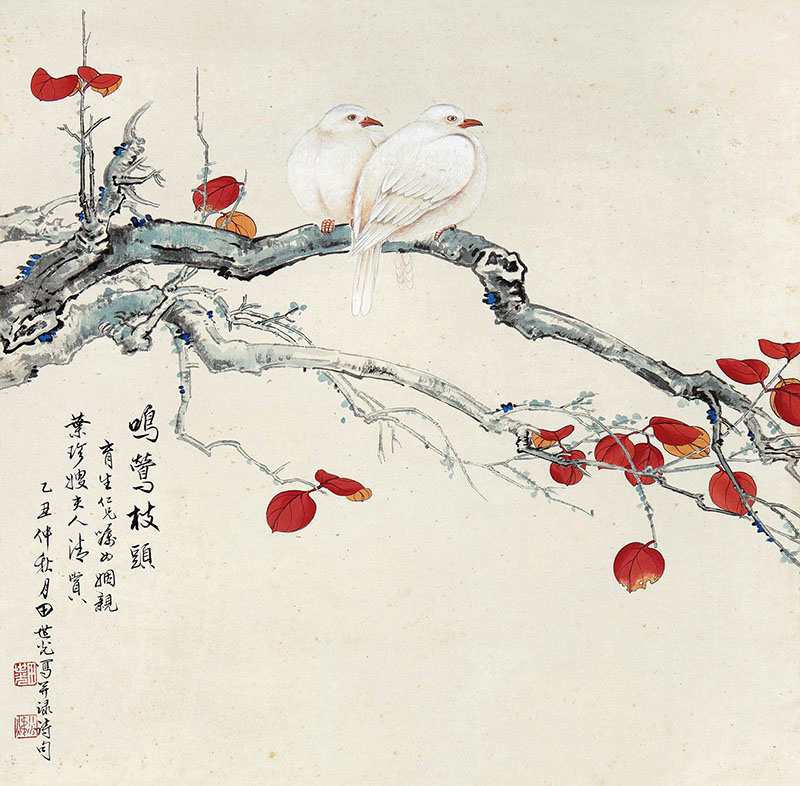 鳴鶯枝頭
育生仁兄囑為姻親
葉珍嫂夫人清賞
乙丑仲秋月田世光寫并録詩句